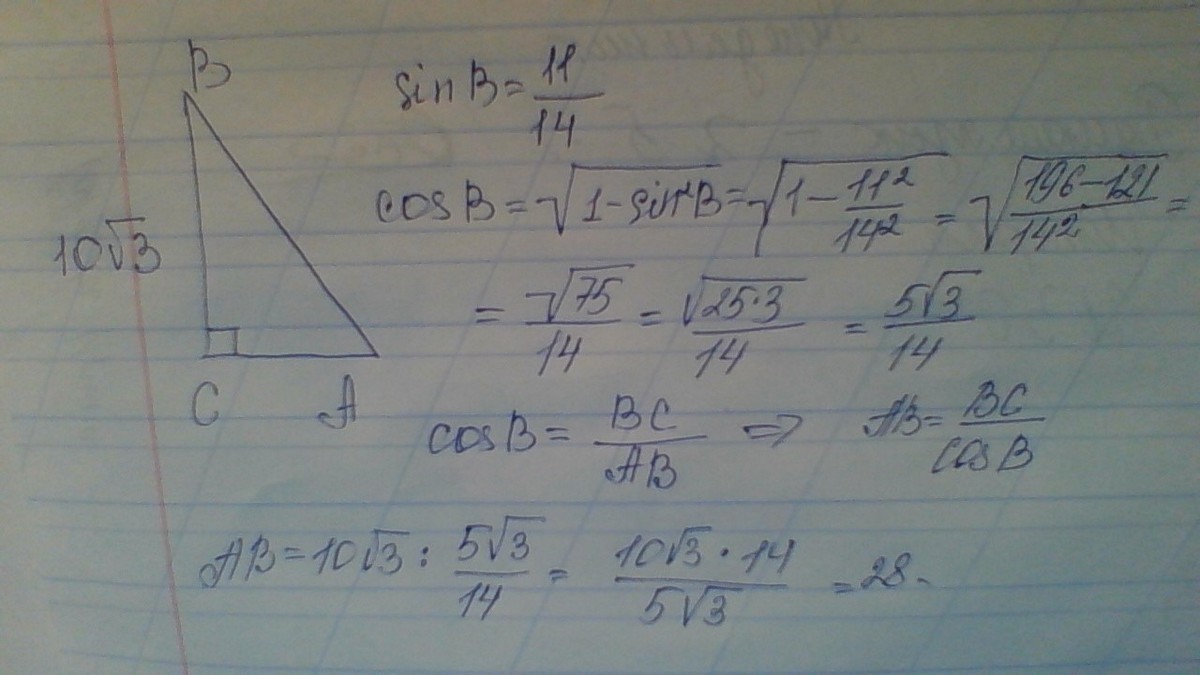 B
sin B = 11/14
cos B = √(1 - sin²B) = √(1 - 11²/14²) = √((196 - 121)/14²) =
10√3
= √75/14 = √(25·3)/14 = 5√3/14
C A
cos B = BC/AB ⇒ AB = BC/cos B
AB = 10√3 : 5√3/14 = 10√3 · 14/5√3 = 28.